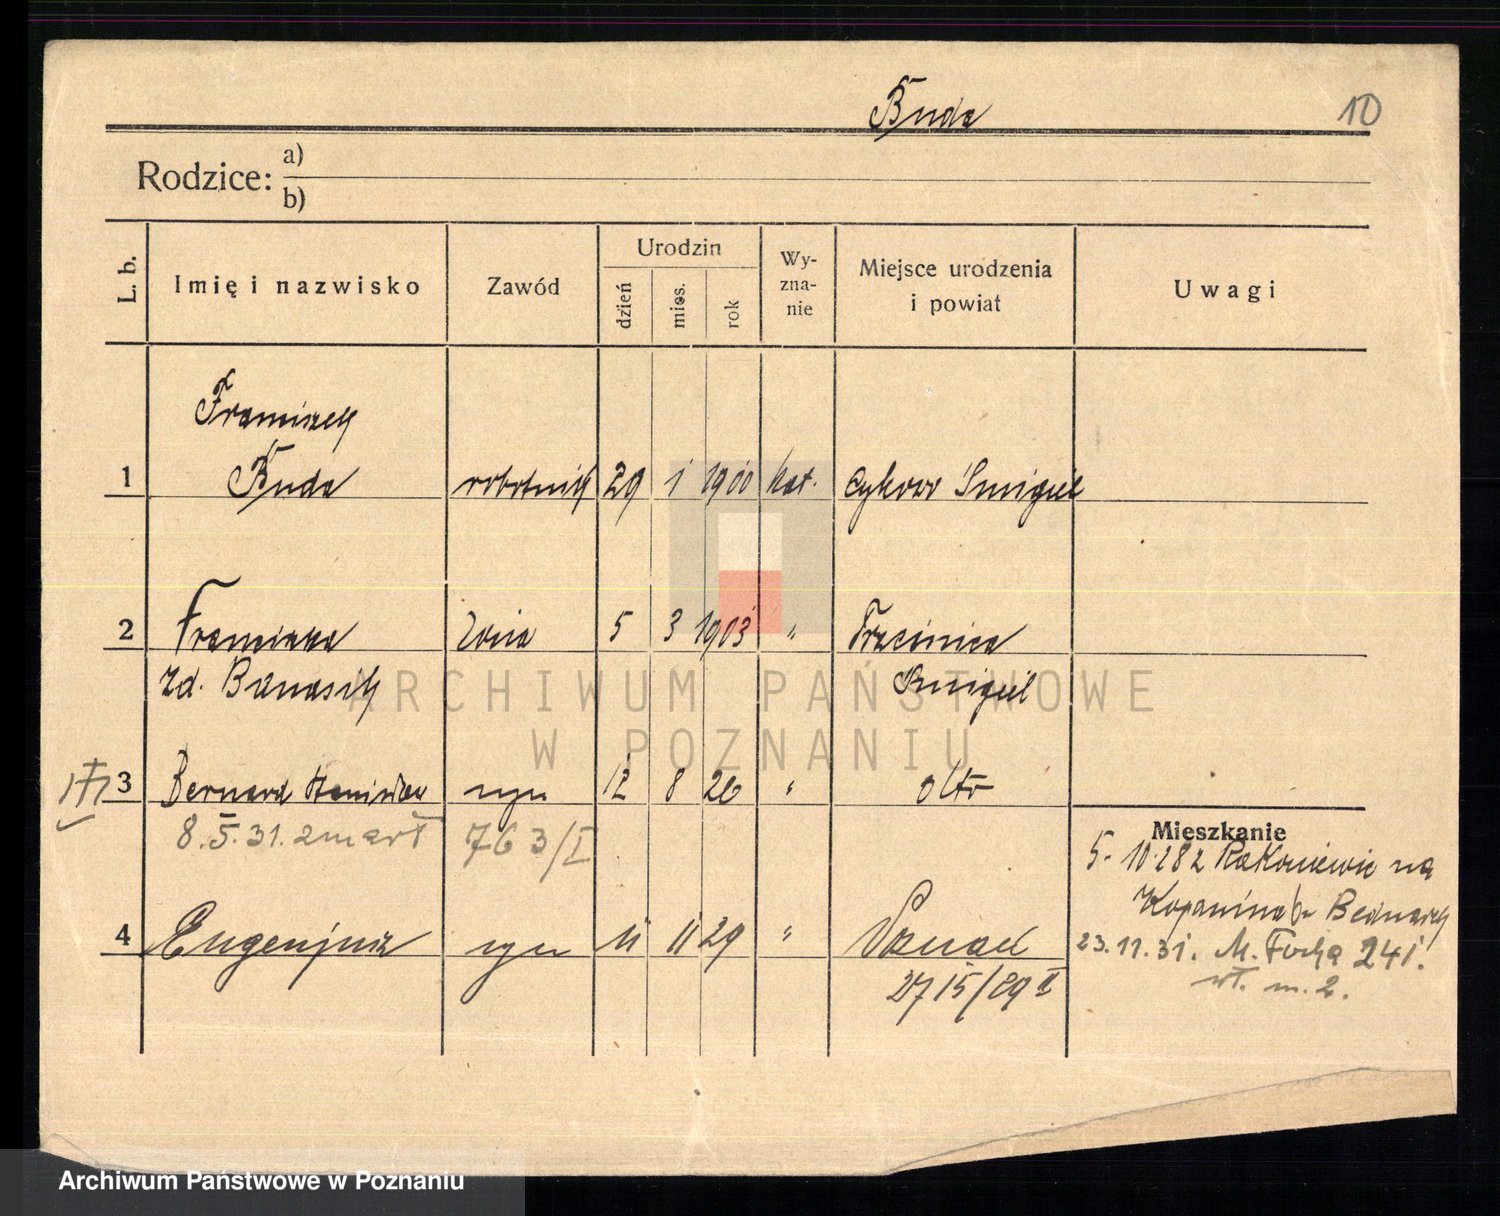 Buda
10
Rodzice: a)
b)
L. b.
Imię i nazwisko
Zawód
Urodzin
dzień
mies.
rok
Wy-
zna-
nie
Miejsce urodzenia
i powiat
Uwagi
Franciszek
1 Buda robotnik 29 1 1900 kat. Cykowo Śmigiel
2 Franciszka żona 5 3 1903 " Trzcinica
zd. Banasik Śmigiel
3 Bernard Stanisław syn 12 8 26 "
8.5.31. zmarł 763/I
Mieszkanie
5. 10.28 z Rakoniewic na
Kopanina
4 Eugenjusz syn 11 11 29 "
2715/29
23.11.31. M. Focha 241.
m. 2.
ARCHIWUM PAŃSTWOWE
W POZNANIU
Archiwum Państwowe w Poznaniu